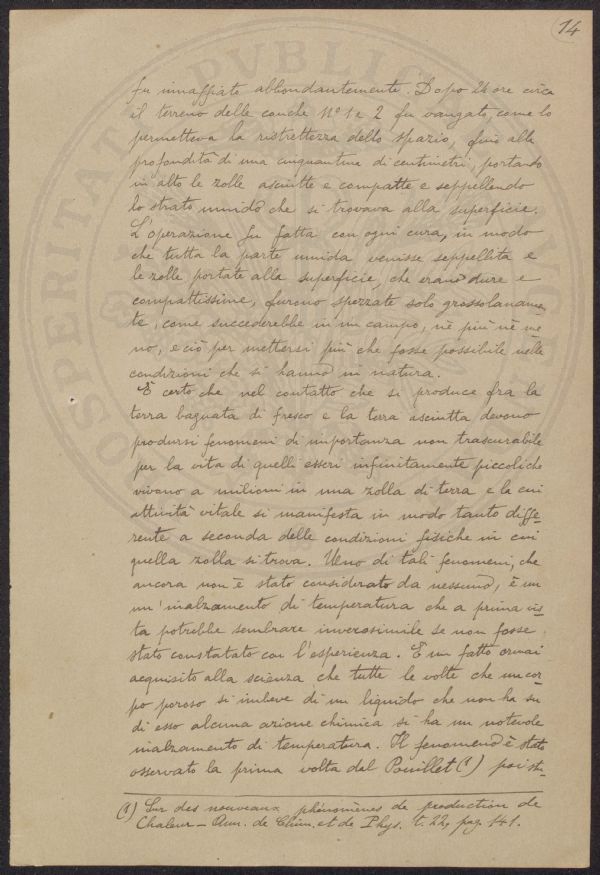 14
fu innaffiato abbondantemente. Dopo 24 ore circa
il terreno delle conche Nº 1 e 2 fu vangato, come lo
permetteva la ristrettezza dello spazio, fino alla
profondità di una cinquantina di centimetri, portando
in alto le zolle asciutte e compatte e seppellendo
lo strato umido che si trovava alla superficie.
L'operazione fu fatta con ogni cura, in modo
che tutta la parte umida venisse seppellita e
le zolle portate alla superficie, che erano dure e
compattissime, furono spezzate solo grossolanamen-
te, come succederebbe in un campo, nè più nè me
no, e ciò per mettersi più che fosse possibile nelle
condizioni che si hanno in natura.
È certo che nel contatto che si produce fra la
terra bagnata di fresco e la terra asciutta devono
prodursi fenomeni di importanza non trascurabile
per la vita di quelli esseri infinitamente piccoli che
vivono a milioni in una zolla di terra e la cui
attività vitale si manifesta in modo tanto diffe-
rente a seconda delle condizioni fisiche in cui
quella zolla si trova. Uno di tali fenomeni, che
ancora non è stato considerato da nessuno, è un
un' inalzamento di temperatura che a prima vis-
ta potrebbe sembrare inverosimile se non fosse
stato constatato con l'esperienza. È un fatto ormai
acquisito alla scienza che tutte le volte che un cor-
po poroso si imbeve di un liquido che non ha su
di esso alcuna azione chimica si ha un notevole
inalzamento di temperatura. Il fenomeno è stato
osservato la prima volta dal Pouillet (1) poi stu-
(1) Sur des nouveaux phénomènes de production de
Chaleur - Ann. de Chim. et de Phys. t. 22, pag. 141.
PVBLICO